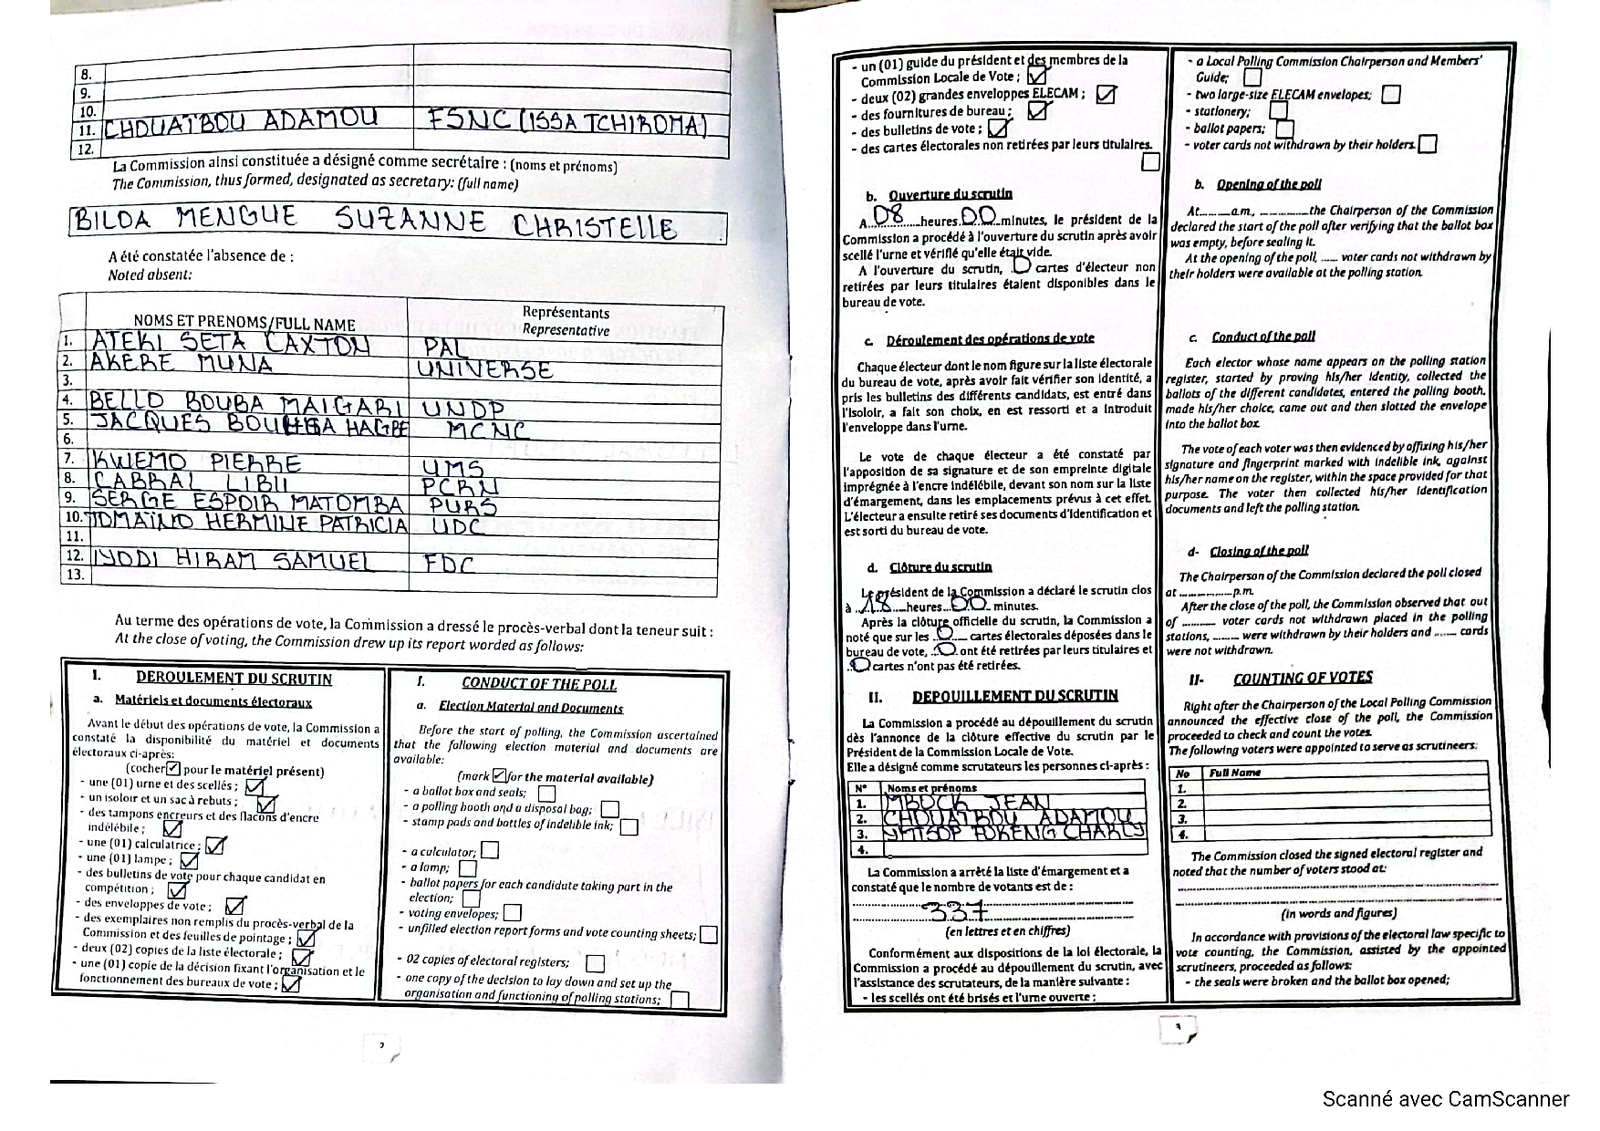 8.
9.
10.
11. CHOUAIBOU ADAMOU FSNC (ISSA TCHIROMA)
12.
La Commission ainsi constituée a désigné comme secrétaire : (noms et prénoms)
The Commission, thus formed, designated as secretary: (full name)
BILOA MENGUE SUZANNE CHRISTELLE
A été constatée l'absence de :
Noted absent:
NOMS ET PRENOMS/FULL NAME Représentants
Representative
1. ATEKI SETA CAXTON PAL
2. AKERE MUNA UNIVERSE
3.
4. BELLO BOUBA MAIGARI UNDP
5. JACQUES BOUHGA HAGBE MCNC
6.
7. KWEMO PIERRE UMS
8. CABRAL LIBII PCRN
9. SERGE ESPOIR MATOMBA PURS
10. TOMAÏNO HERMINE PATRICIA UDC
11.
12. IYODI HIRAM SAMUEL FDC
13.
Au terme des opérations de vote, la Commission a dressé le procès-verbal dont la teneur suit :
At the close of voting, the Commission drew up its report worded as follows:
I. DEROULEMENT DU SCRUTIN
a. Matériels et documents électoraux
Avant le début des opérations de vote, la Commission a
constaté la disponibilité du matériel et documents
électoraux ci-après:
(cocher ☑ pour le matériel présent)
- une (01) urne et des scellés ; ☑
- un isoloir et un sac à rebuts ; ☑
- des tampons encreurs et des flacons d'encre
indélébile ; ☑
- une (01) calculatrice ; ☑
- une (01) lampe ; ☑
- des bulletins de vote pour chaque candidat en
compétition ; ☑
- des enveloppes de vote ; ☑
- des exemplaires non remplis du procès-verbal de la
Commission et des feuilles de pointage ; ☑
- deux (02) copies de la liste électorale ; ☑
- une (01) copie de la décision fixant l'organisation et le
fonctionnement des bureaux de vote ; ☑
I. CONDUCT OF THE POLL
a. Election Material and Documents
Before the start of polling, the Commission ascertained
that the following election material and documents are
available:
(mark ☑ for the material available)
- a ballot box and seals; ☐
- a polling booth and a disposal bag; ☐
- stamp pads and bottles of indelible ink; ☐
- a calculator; ☐
- a lamp; ☐
- ballot papers for each candidate taking part in the
election; ☐
- voting envelopes; ☐
- unfilled election report forms and vote counting sheets; ☐
- 02 copies of electoral registers; ☐
- one copy of the decision to lay down and set up the
organisation and functioning of polling stations; ☐
- un (01) guide du président et des membres de la
Commission Locale de Vote ; ☑
- deux (02) grandes enveloppes ELECAM ; ☑
- des fournitures de bureau ; ☑
- des bulletins de vote ; ☑
- des cartes électorales non retirées par leurs titulaires. ☐
b. Ouverture du scrutin
A 08 heures 00 minutes, le président de la
Commission a procédé à l'ouverture du scrutin après avoir
scellé l'urne et vérifié qu'elle était vide.
A l'ouverture du scrutin, 0 cartes d'électeur non
retirées par leurs titulaires étaient disponibles dans le
bureau de vote.
c. Déroulement des opérations de vote
Chaque électeur dont le nom figure sur la liste électorale
du bureau de vote, après avoir fait vérifier son identité, a
pris les bulletins des différents candidats, est entré dans
l'isoloir, a fait son choix, en est ressorti et a introduit
l'enveloppe dans l'urne.
Le vote de chaque électeur a été constaté par
l'apposition de sa signature et de son empreinte digitale
imprégnée à l'encre indélébile, devant son nom sur la liste
d'émargement, dans les emplacements prévus à cet effet.
L'électeur a ensuite retiré ses documents d'identification et
est sorti du bureau de vote.
d. Clôture du scrutin
Le président de la Commission a déclaré le scrutin clos
à 18 heures 00 minutes.
Après la clôture officielle du scrutin, la Commission a
noté que sur les 0 cartes électorales déposées dans le
bureau de vote, 0 ont été retirées par leurs titulaires et
0 cartes n'ont pas été retirées.
II. DEPOUILLEMENT DU SCRUTIN
La Commission a procédé au dépouillement du scrutin
dès l'annonce de la clôture effective du scrutin par le
Président de la Commission Locale de Vote.
Elle a désigné comme scrutateurs les personnes ci-après :
N° Noms et prénoms
1. MBOCK JEAN
2. CHOUAIBOU ADAMOU
3. FOKENG CHARLY
4.
La Commission a arrêté la liste d'émargement et a
constaté que le nombre de votants est de :
337
(en lettres et en chiffres)
Conformément aux dispositions de la loi électorale, la
Commission a procédé au dépouillement du scrutin, avec
l'assistance des scrutateurs, de la manière suivante :
- les scellés ont été brisés et l'urne ouverte ;
- a Local Polling Commission Chairperson and Members'
Guide; ☐
- two large-size ELECAM envelopes; ☐
- stationery; ☐
- ballot papers; ☐
- voter cards not withdrawn by their holders. ☐
b. Opening of the poll
At........a.m., ............the Chairperson of the Commission
declared the start of the poll after verifying that the ballot box
was empty, before sealing it.
At the opening of the poll, ..... voter cards not withdrawn by
their holders were available at the polling station.
c. Conduct of the poll
Each elector whose name appears on the polling station
register, started by proving his/her identity, collected the
ballots of the different candidates, entered the polling booth,
made his/her choice, came out and then slotted the envelope
into the ballot box.
The vote of each voter was then evidenced by affixing his/her
signature and fingerprint marked with indelible ink, against
his/her name on the register, within the space provided for that
purpose. The voter then collected his/her identification
documents and left the polling station.
d- Closing of the poll
The Chairperson of the Commission declared the poll closed
at ............p.m.
After the close of the poll, the Commission observed that out
of ......... voter cards not withdrawn placed in the polling
stations, ....... were withdrawn by their holders and ...... cards
were not withdrawn.
II- COUNTING OF VOTES
Right after the Chairperson of the Local Polling Commission
announced the effective close of the poll, the Commission
proceeded to check and count the votes.
The following voters were appointed to serve as scrutineers:
No Full Name
1.
2.
3.
4.
The Commission closed the signed electoral register and
noted that the number of voters stood at:
(in words and figures)
In accordance with provisions of the electoral law specific to
vote counting, the Commission, assisted by the appointed
scrutineers, proceeded as follows:
- the seals were broken and the ballot box opened;
2
3
Scanné avec CamScanner